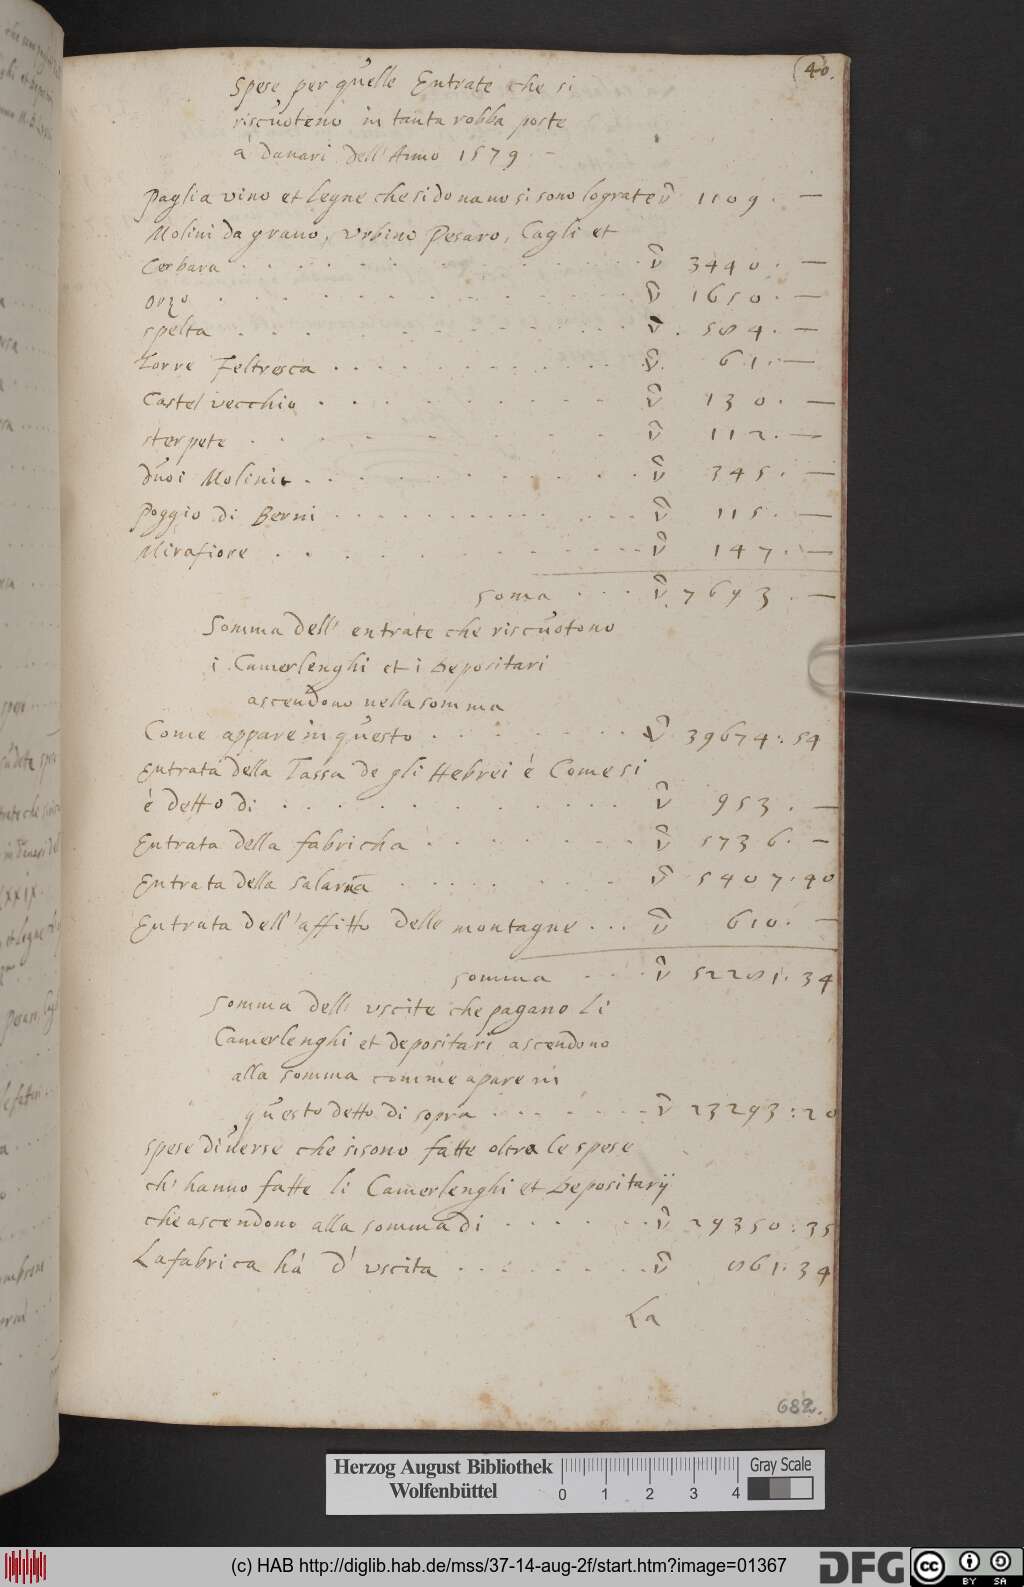 40.
Spese per quelle Entrate che si
riscuoteno in tanta robba poste
à danari dell'Anno 1579. —
Paglia vino et legne che si donano si sono lograte ꝟ 1109. —
Molini da grano, Urbino Pesaro, Cagli et
Corbara . . . . . . . . . . ꝟ 3440. —
Orzo . . . . . . . . . . . ꝟ 1650. —
spelta . . . . . . . . . . ꝟ. 584. —
Torre Feltresca . . . . . . . . ꝟ. 61. —
Castel vecchio . . . . . . . . ꝟ 130. —
sterpete . . . . . . . . . ꝟ 112. —
duoi Molini . . . . . . . . . ꝟ 345. —
Poggio di Berni . . . . . . . . . ꝟ 115. —
Mirafiore . . . . . . . . . ꝟ 147. —
soma . . . ꝟ. 7693. —
Somma dell' entrate che riscuotono
i Camerlenghi et i Depositari
ascendono nella somma
Come appare in questo . . . . . . . ꝟ 39674: 54
Entrata della Tassa de gli Hebrei è Come si
è detto di . . . . . . . . . . ꝟ 953. —
Entrata della fabricha . . . . . . . ꝟ 5736. —
Entrata della salarìa . . . . . . . ꝟ 5407. 40
Entrata dell'affitto delle montagne . . . ꝟ 610. —
somma . . . ꝟ 52281. 34
Somma dell' uscite che pagano li
Camerlenghi et depositari ascendono
alla somma comme apare in
questo detto di sopra . . . . . . ꝟ 23293: 20
spese diverse che si sono fatte oltra le spese
ch' hanno fatte li Camerlenghi et Depositarij
che ascendono alla somma di . . . . . . ꝟ 29350: 35
La fabrica hà d' uscita . . . . . . . ꝟ 861. 34
La
682.
Herzog August Bibliothek
Wolfenbüttel
0 1 2 3 4
Gray Scale
(c) HAB http://diglib.hab.de/mss/37-14-aug-2f/start.htm?image=01367
DFG
cc BY SA